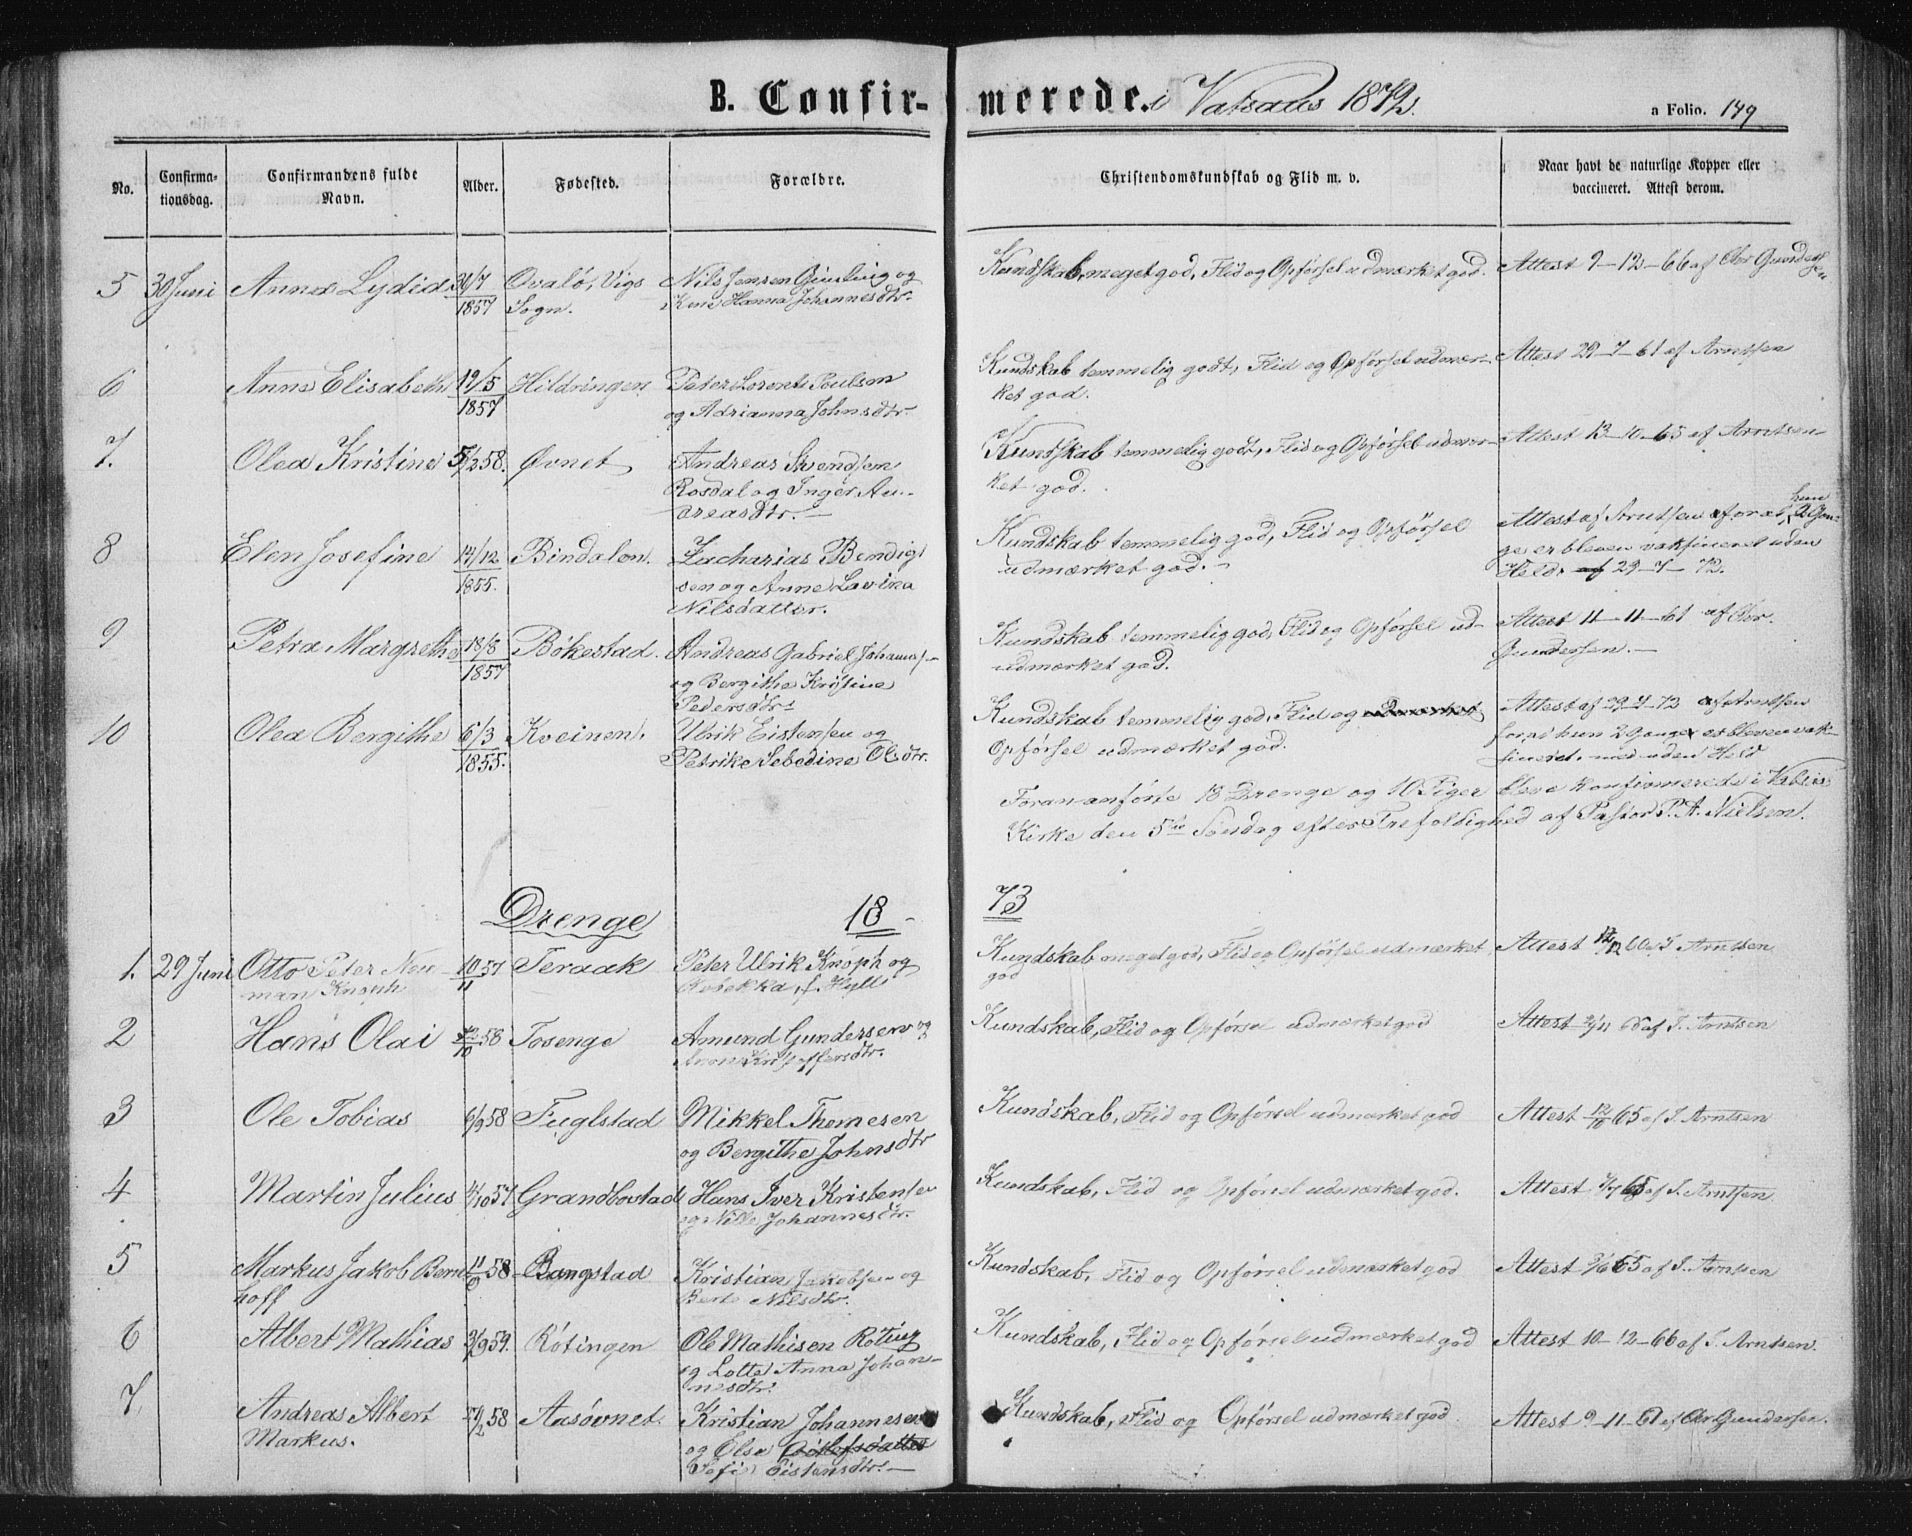 B. Confir- merede. i Vatsaas 1872.
a Folio. 149
No.
Confirma-
tionsdag.
Confirmandens fulde
Navn.
Alder.
Fødested.
Forældre.
Christendomskundskab og Flid m. v.
Naar havt de naturlige Kopper eller
vaccineret. Attest derom.
5 30 Juni Anna Lydia 21/7 Ovalø, Vigs Nils Jensen og Kundskab, meget god, Flid og Opførsel udmærket god. Attest 9-12-66 af Chr Gundersen
1857 Sogn. Kone Hanna Johannesdtr.
6 Anne Elisabeth 19/5 Hildringen Peter Lorents Poulsen Kundskab temmelig godt, Flid og Opførsel udmær- Attest 29-7-61 af Arntsen
1857 og Adrianna Johnsdtr. ket god.
7. Olea Kristine 5/2 58. Øvnet Andreas Svendsen Kundskab temmelig godt, Flid og Opførsel udmær- Attest 13-10-65 af Arntsen
Rosdal og Inger An- ket god.
dreasdtr.
8 Elen Josefine 14/12 Bindalen. Zacharias Bendig Kundskab temmelig god, Flid og Opførsel Attest af Arntsen for at hun 2 Gan-
1855. sen og Anne Lovina udmærket god. ge er bleven vaksineret uden
Nilsdatter. Held. af 29-7-72.
9 Petra Margrethe 18/8 Bøkestad. Andreas Gabriel Johans Kundskab temmelig god, Flid og Opførsel ud- Attest 11-11-61 af Chr.
1857 og Bergithe Kristine udmærket god. Gundersen.
Pedersdtr.
10 Olea Bergithe 6/3 Kveinen. Ulrik Eistensen og Kundskab temmelig god, Flid og udmærket Attest af 29-7-72 af Arntsen
1855. Petrike Sebedine Olsdtr. Opførsel udmærket god. for at hun 2 Gange er bleven vak-
sineret, med uden Held
Foran anførte 18 Drenge og 10 Piger bleve konfirmerede i Vatsaas
Kirke den 5te Søndag efter Trefoldighed af Pastor P. A. Nielsen.
Drenge 18 73
1. 29 Juni Otto Peter Nor- 10/11 57 Teraak Peter Ulrik Knoph og Kundskab meget god, Flid og Opførsel udmærket Attest 60 af S. Arntsen
man Knoph Rebekka, f. Hyll god
2 Hans Olai 58 Tosenge Amund Gundersen og Kundskab, Flid og Opførsel udmærket god Attest af S. Arntsen
Kristoffersdtr.
3 Ole Tobias 6/9 58 Fuglstad Mikkel Thomesen Kundskab, Flid og Opførsel udmærket god Attest 12/10 65 af S. Arntsen
og Bergithe Johnsdtr
4 Martin Julius 4/10 57 Grandbostad Hans Iver Kristense Kundskab, Flid og Opførsel udmærket god. Attest 65 af S. Arntsen
og Nille Johannesdtr.
5 Markus Jakob Bern 58 Bangstad Kristian Jakobsen og Kundskab, Flid og Opførsel udmærket god Attest 65 af S. Arntsen
hoff Berte Nilsdtr.
6 Albert Mathias 59. Røtingen Ole Mathisen Røting Kundskab, Flid og Opførsel udmærket god Attest 10-12-66 af S. Arntsen.
og Lotte Anna Johan-
nesdtr.
7. Andreas Albert 58 Aasøvnet. Kristian Johannesen Kundskab, Flid og Opførsel udmærket god Attest 9-11-61 af Chr Gundersen.
Markus. og Else
Sofi Eistensdtr.